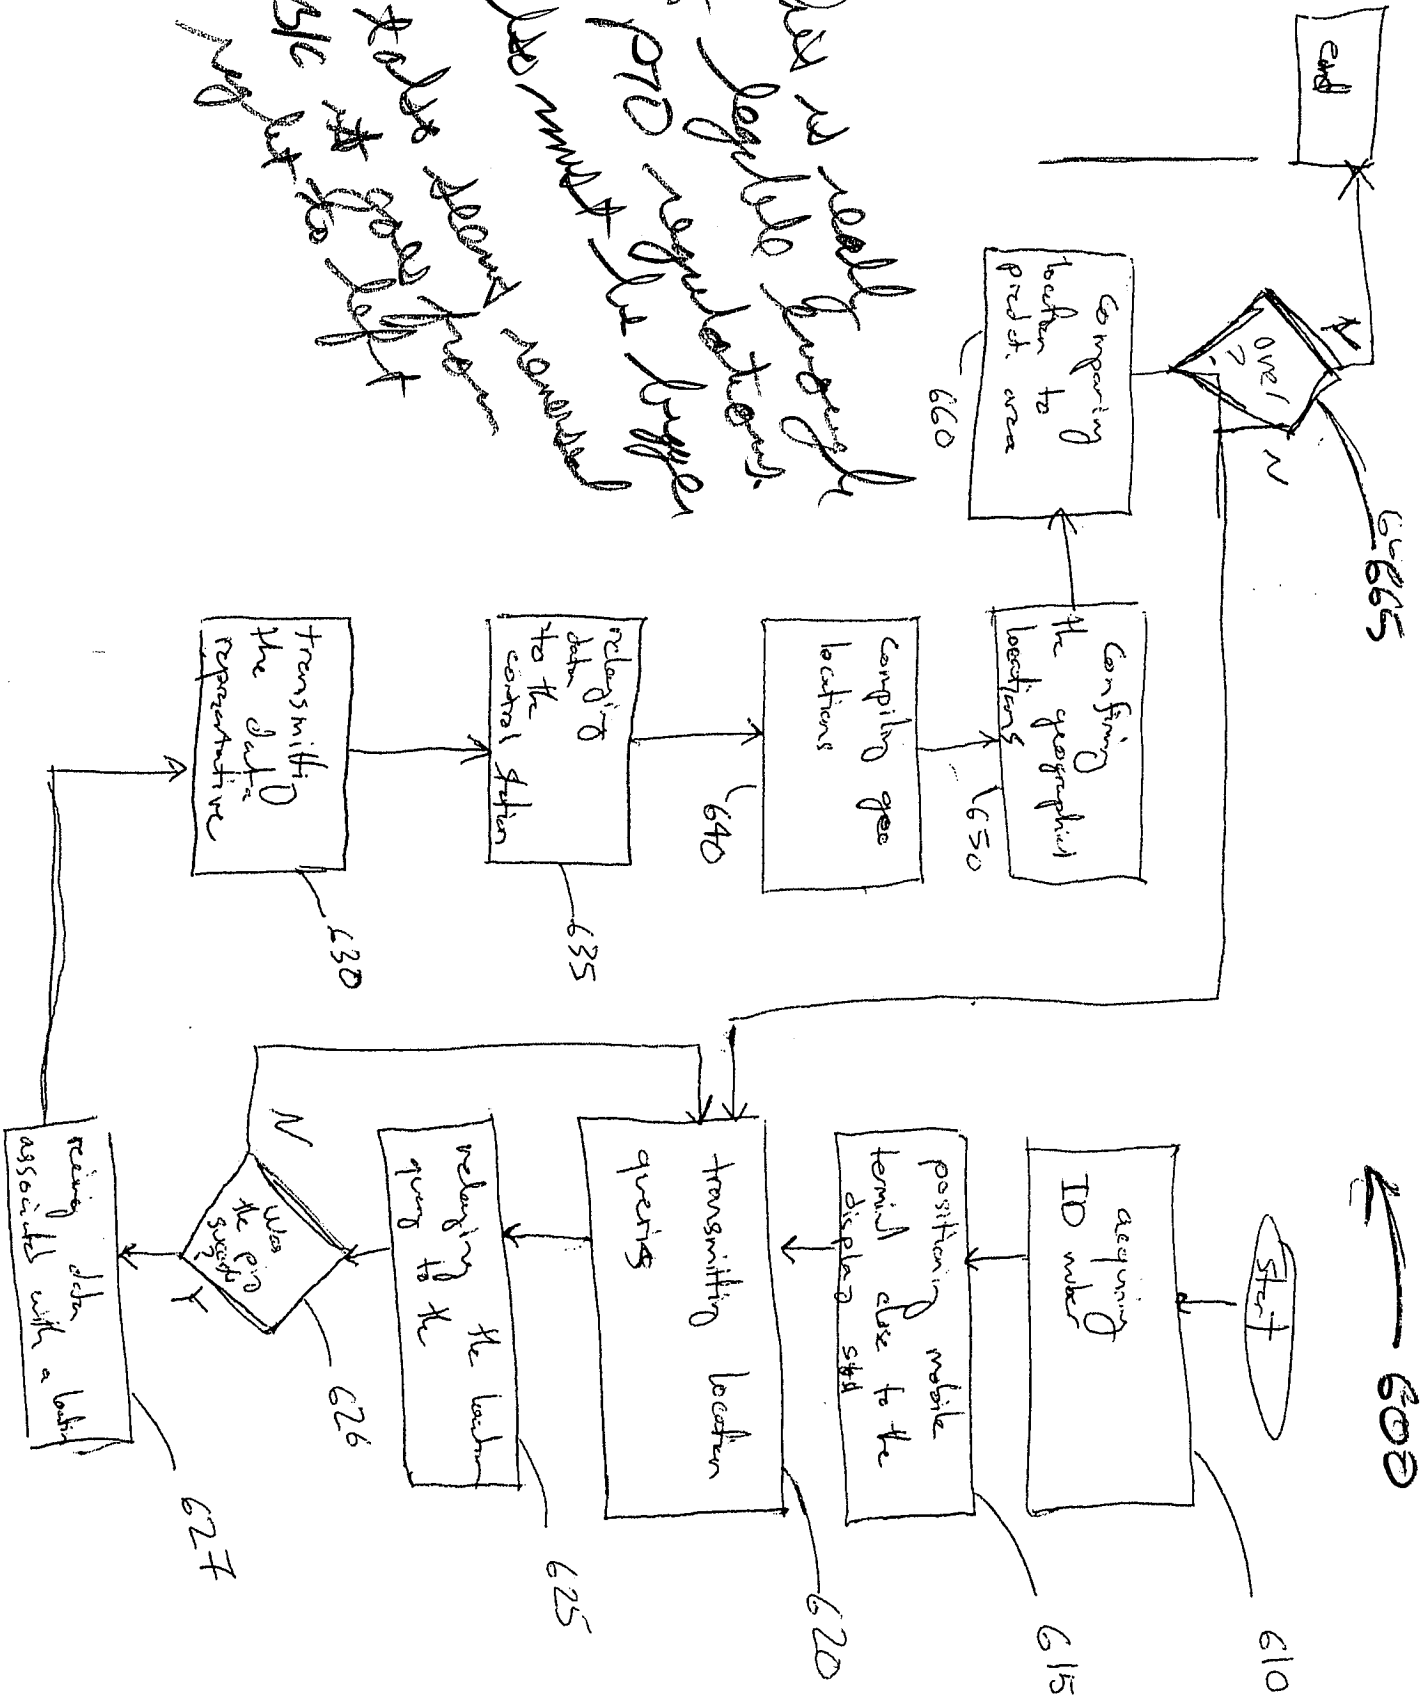 600
Start
acquiring
ID number
610
positioning mobile
terminal close to the
display
615
transmitting location
queris
620
relaying the location
query to the
625
Was
the pin
?
626
N
Y
receiving data
associated with a location
627
transmitting
the data
representative
630
relaying
data
to the
control station
635
Compiling geo
locations
640
Confirming
the geographical
locations
650
Comparing
location to
predet. area
660
over
?
665
N
end
is really
legible enough
PTO regulations.
must be bigger
also seems
B/C it goes from
right to left